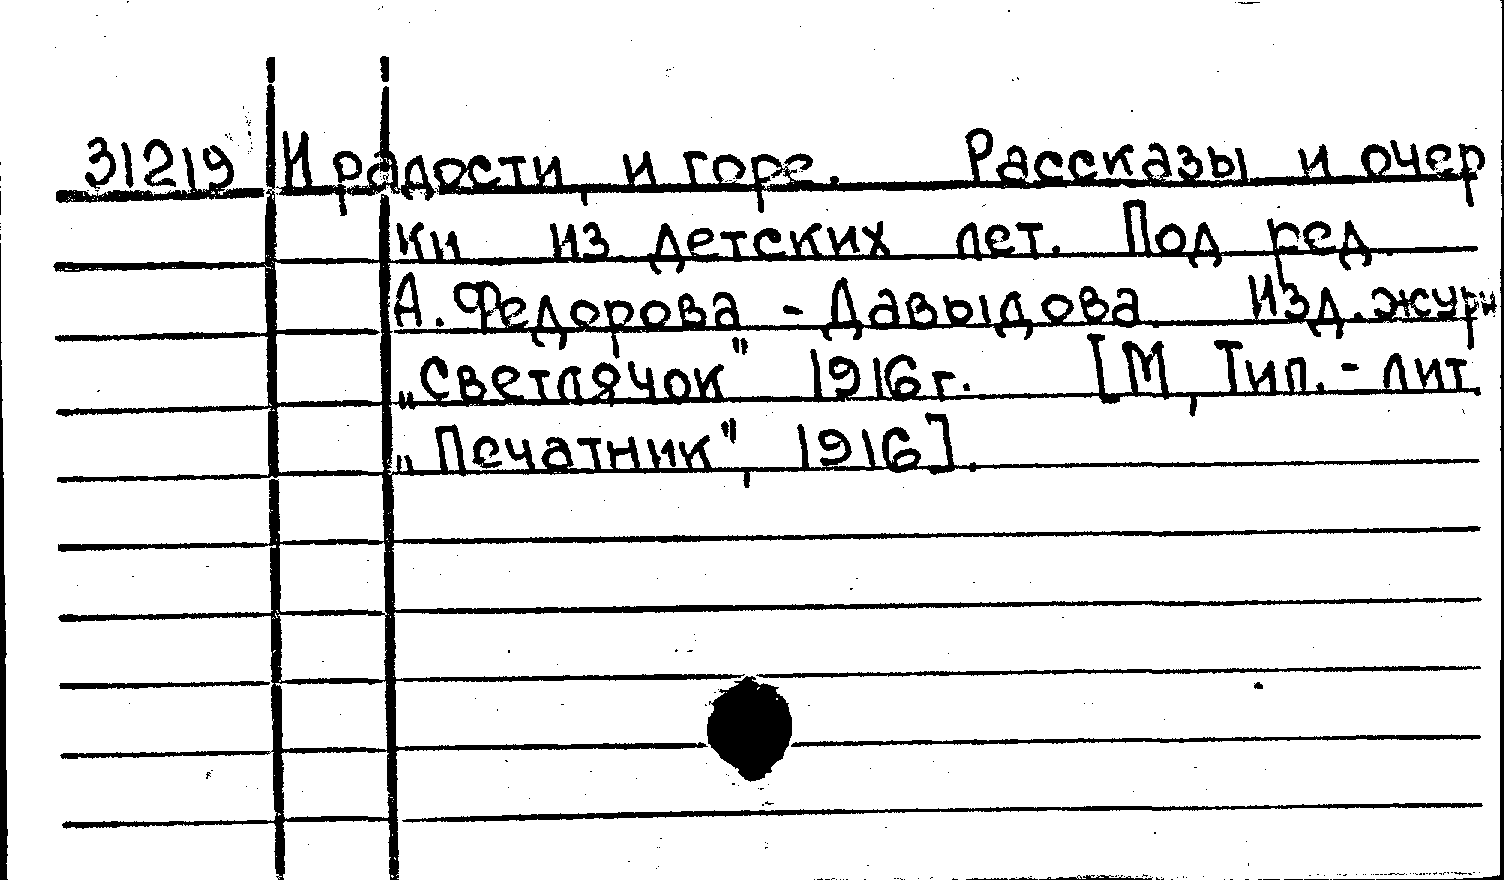 31219 И радости, и горе. Рассказы и очер
ки из детских лет. Под ред.
А. Федорова - Давыдова. Изд. журн
„Светлячок" 1916 г. [М, Тип. - лит.
„Печатник", 1916].